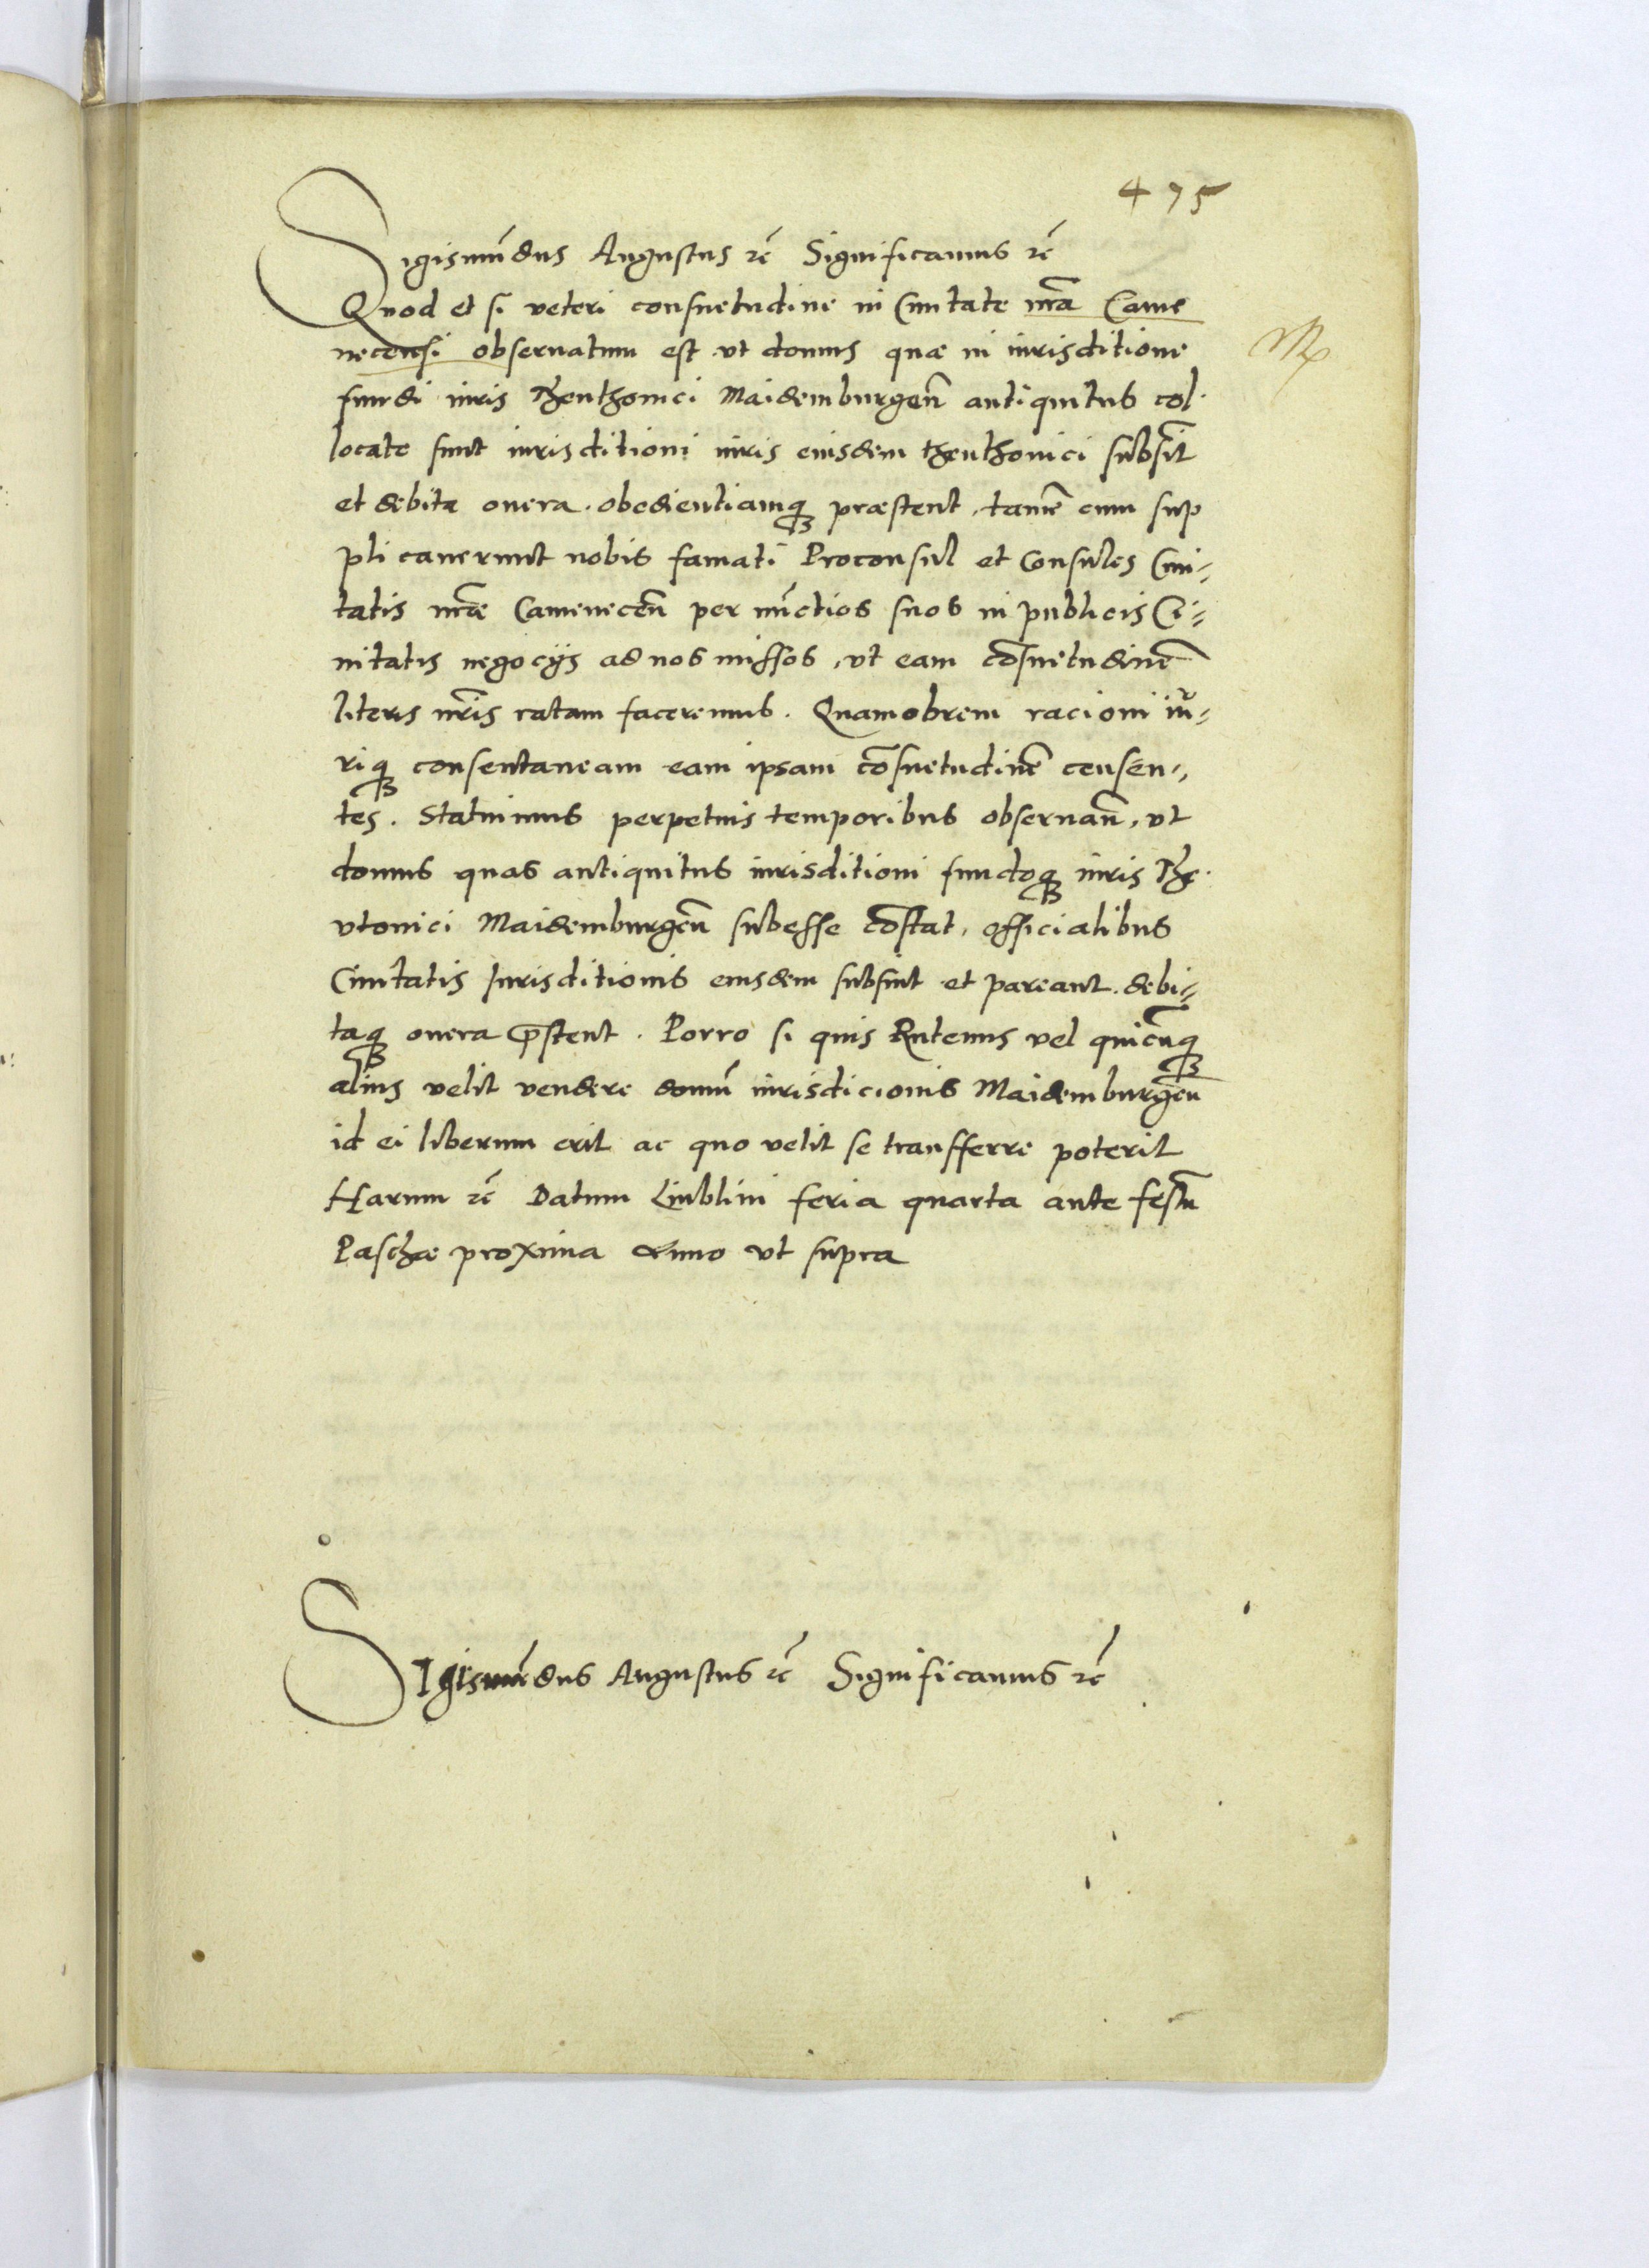 475
Sigismūdus Augustus rč Significamus rč
Quod et si veteri consuetudine in Ciuitate nrā Came
necensi obseruatum est vt domus quæ in iurisditione
fundi iuris Theuthonici Maidemburgeñ antiquitus col-
locate sunt iurisditioni iuris eiusdem theuthonici subsīt
et debita onera obedientiamq₃ præstent, tamē cum sup
plicauerunt nobis famati Proconsul et Consules Ciui-
tatis nræ Cameneceñ per nūctios suos in publicis Ci-
uitatis negocijs ad nos missos, vt eam cōsuetudinē
literis nrīs ratam faceremus. Quamobrem racioni iu-
riq₃ consentaneam eam ipsam cōsuetudinē censen-
tes. Statuimus perpetuis temporibus obseruañ, vt
domus quas antiquitus iurisditioni fundoq₃ iuris The-
vtonici Maidemburgeñ subesse cōstat, officialibus
Ciuitatis Iurisditionis eiusdem subsint et pareant. debi-
taq₃ onera p̄stent. Porro si quis Rutenus vel quicūq₃
alius velit vendere domū iurisdicionis Maidemburgeñ
id ei liberum erit ac quo velit se transferre poterit
Harum rč Datum Liublini feria quarta ante festū
Paschæ proxima Anno vt supra
SIgismūdus Augustus rč Significamus rč